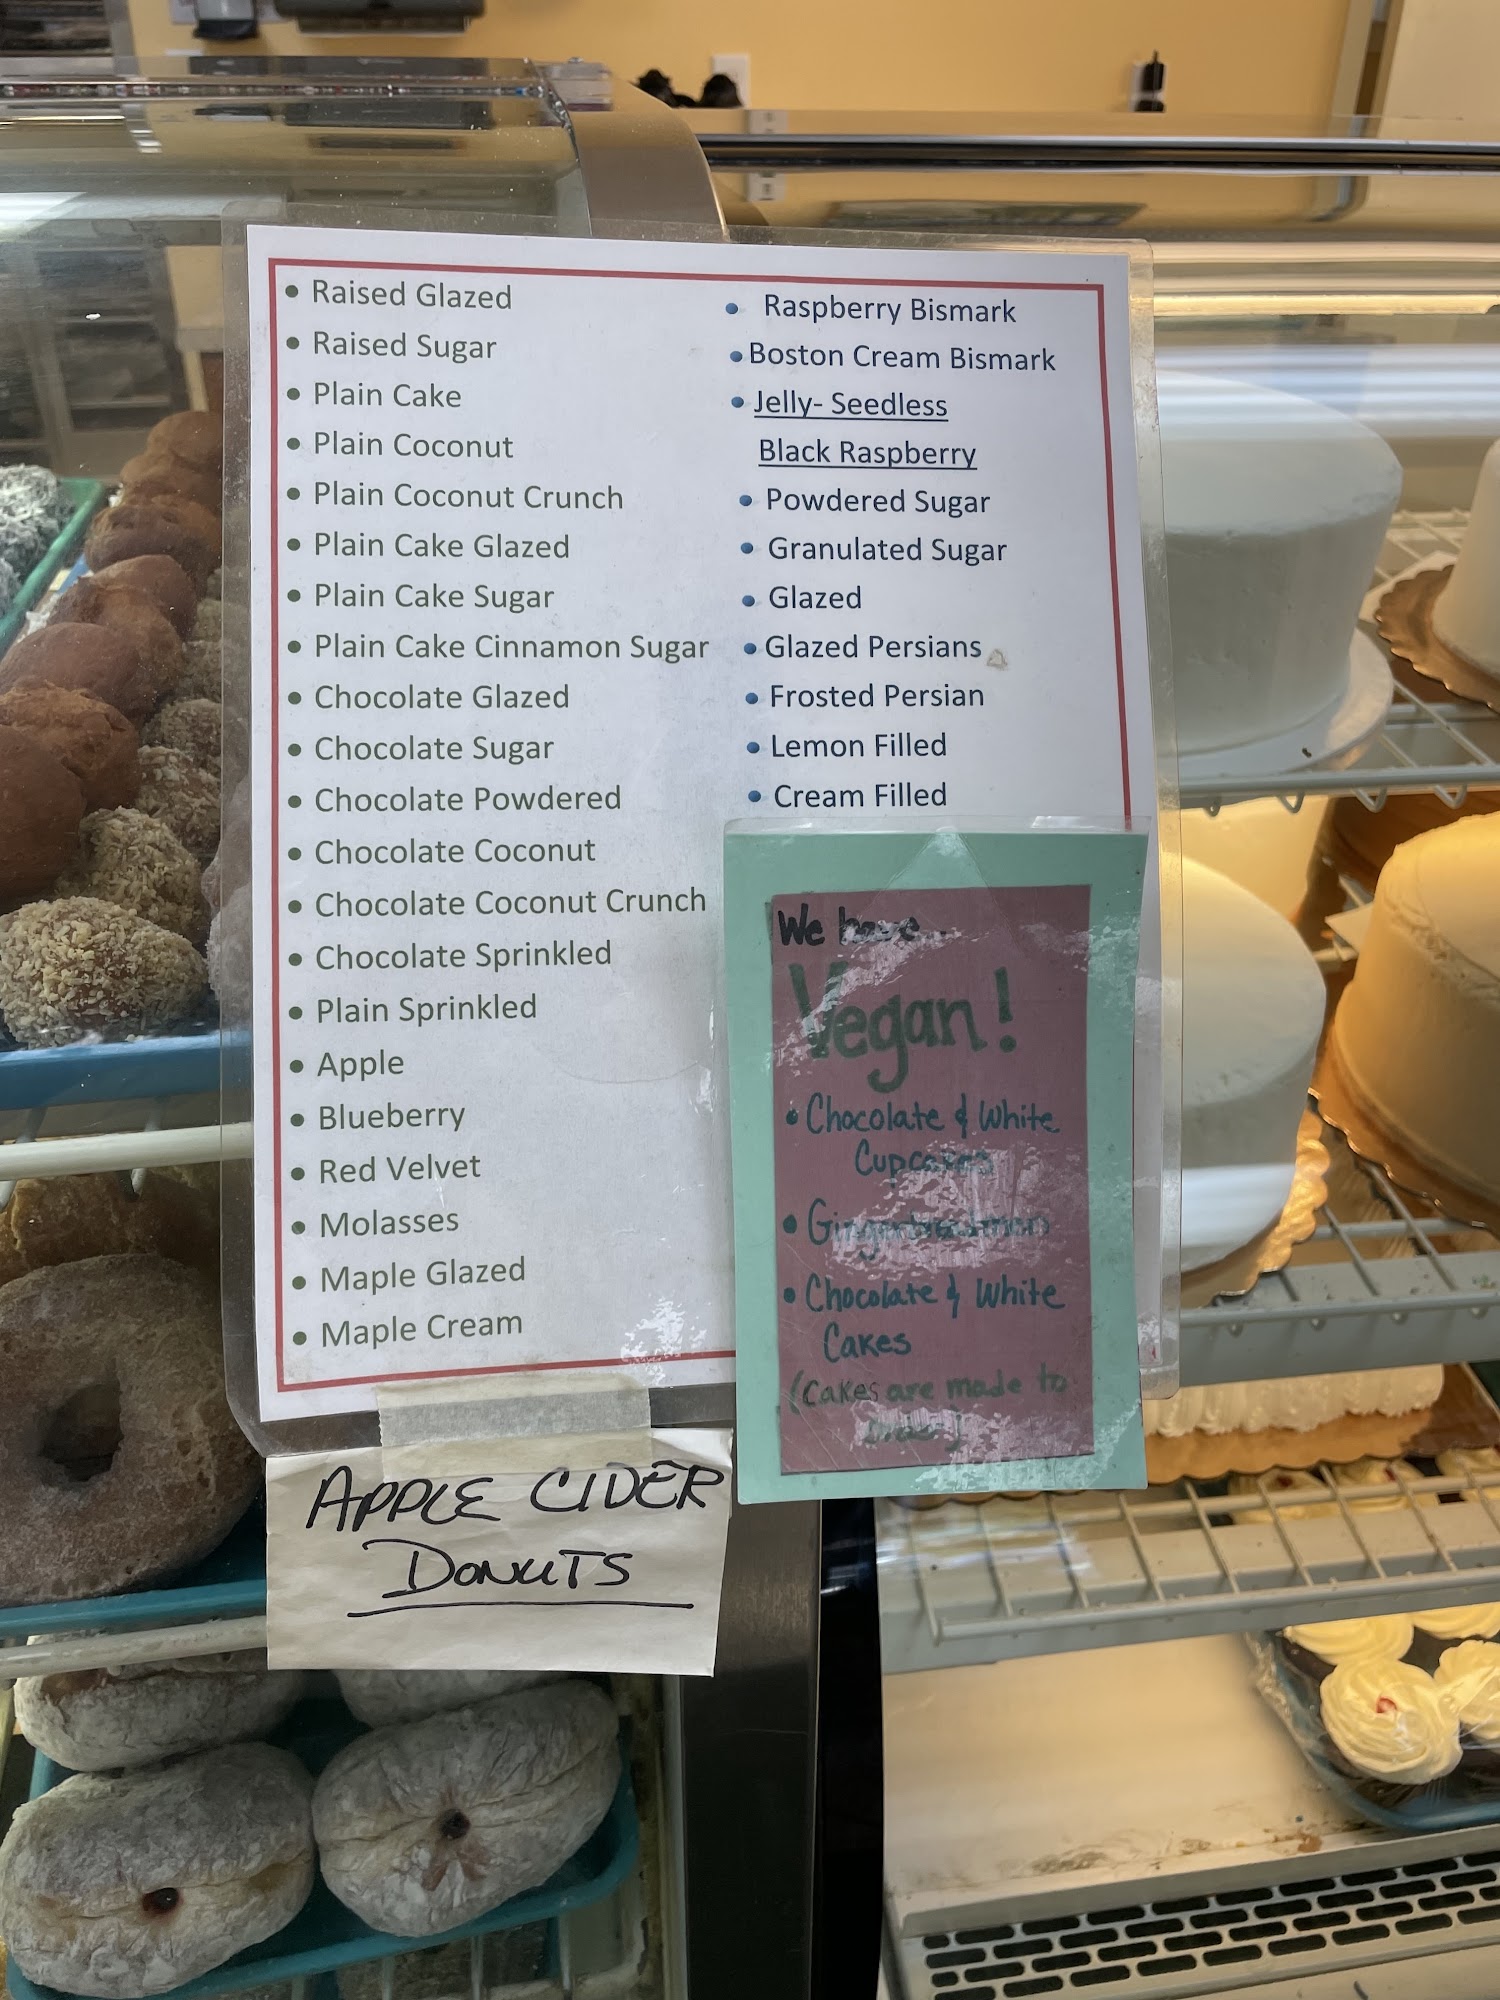 Raised Glazed
Raised Sugar
Plain Cake
Plain Coconut
Plain Coconut Crunch
Plain Cake Glazed
Plain Cake Sugar
Plain Cake Cinnamon Sugar
Chocolate Glazed
Chocolate Sugar
Chocolate Powdered
Chocolate Coconut
Chocolate Coconut Crunch
Chocolate Sprinkled
Plain Sprinkled
Apple
Blueberry
Red Velvet
Molasses
Maple Glazed
Maple Cream
Raspberry Bismark
Boston Cream Bismark
Jelly- Seedless
Black Raspberry
Powdered Sugar
Granulated Sugar
Glazed
Glazed Persians
Frosted Persian
Lemon Filled
Cream Filled
We have...
Vegan!
Chocolate & White
Cupcakes
Chocolate & White
Cakes
(Cakes are made to
order)
APPLE CIDER
DONUTS